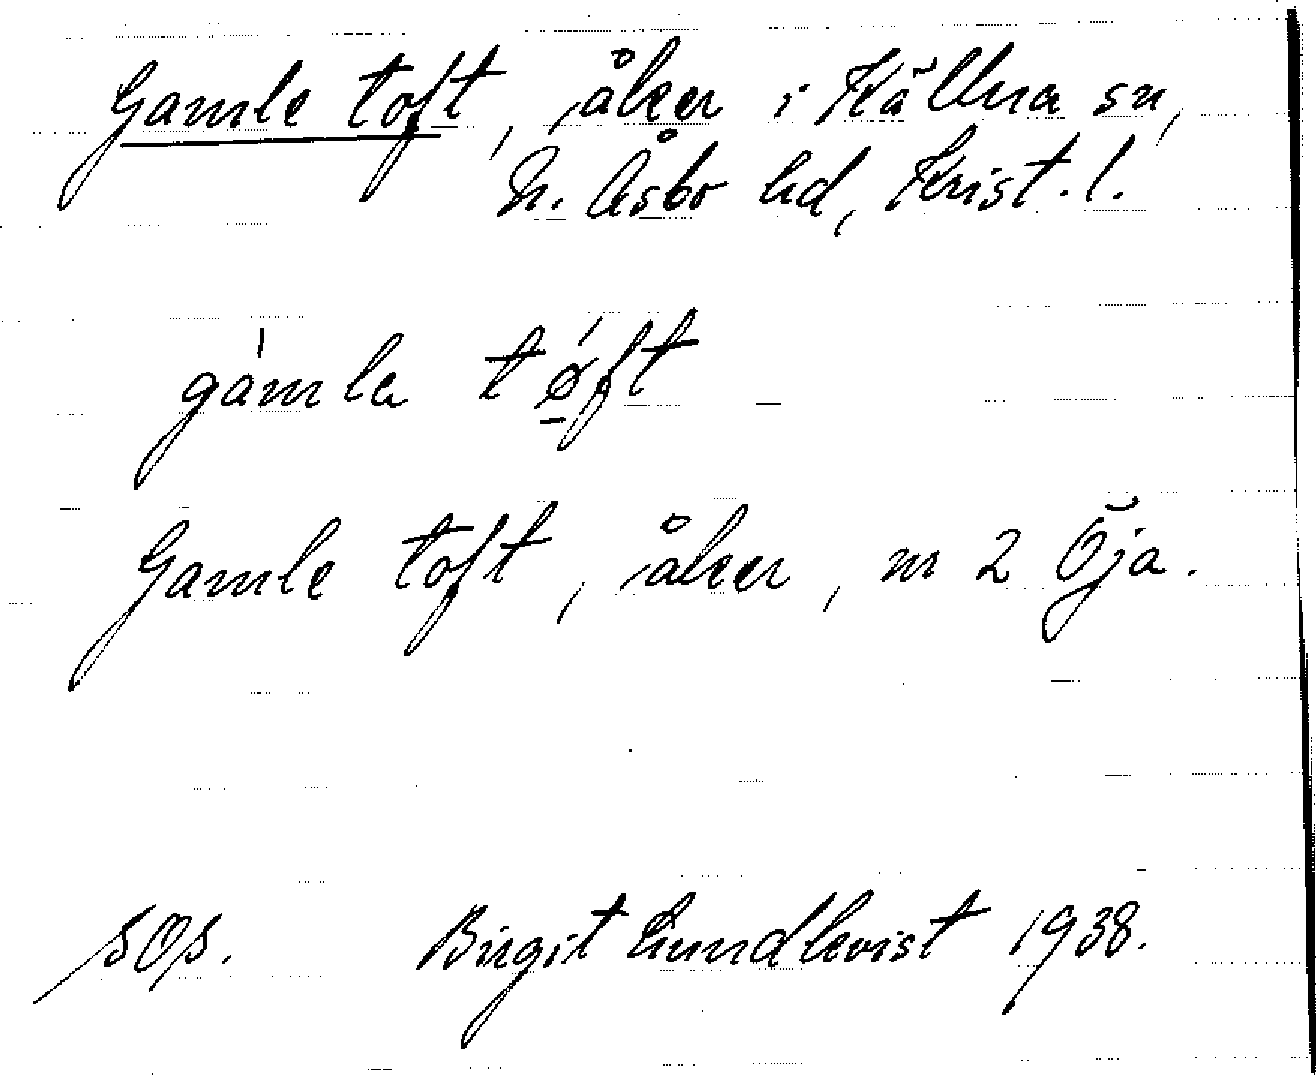 Gamle toft, åker i Källna sn,
N. Åsbo hd, Krist. l.
gámla tǿ̠ft
Gamle toft, åker, nr 2 Öja.
sOs. Birgit Lundkvist 1938.